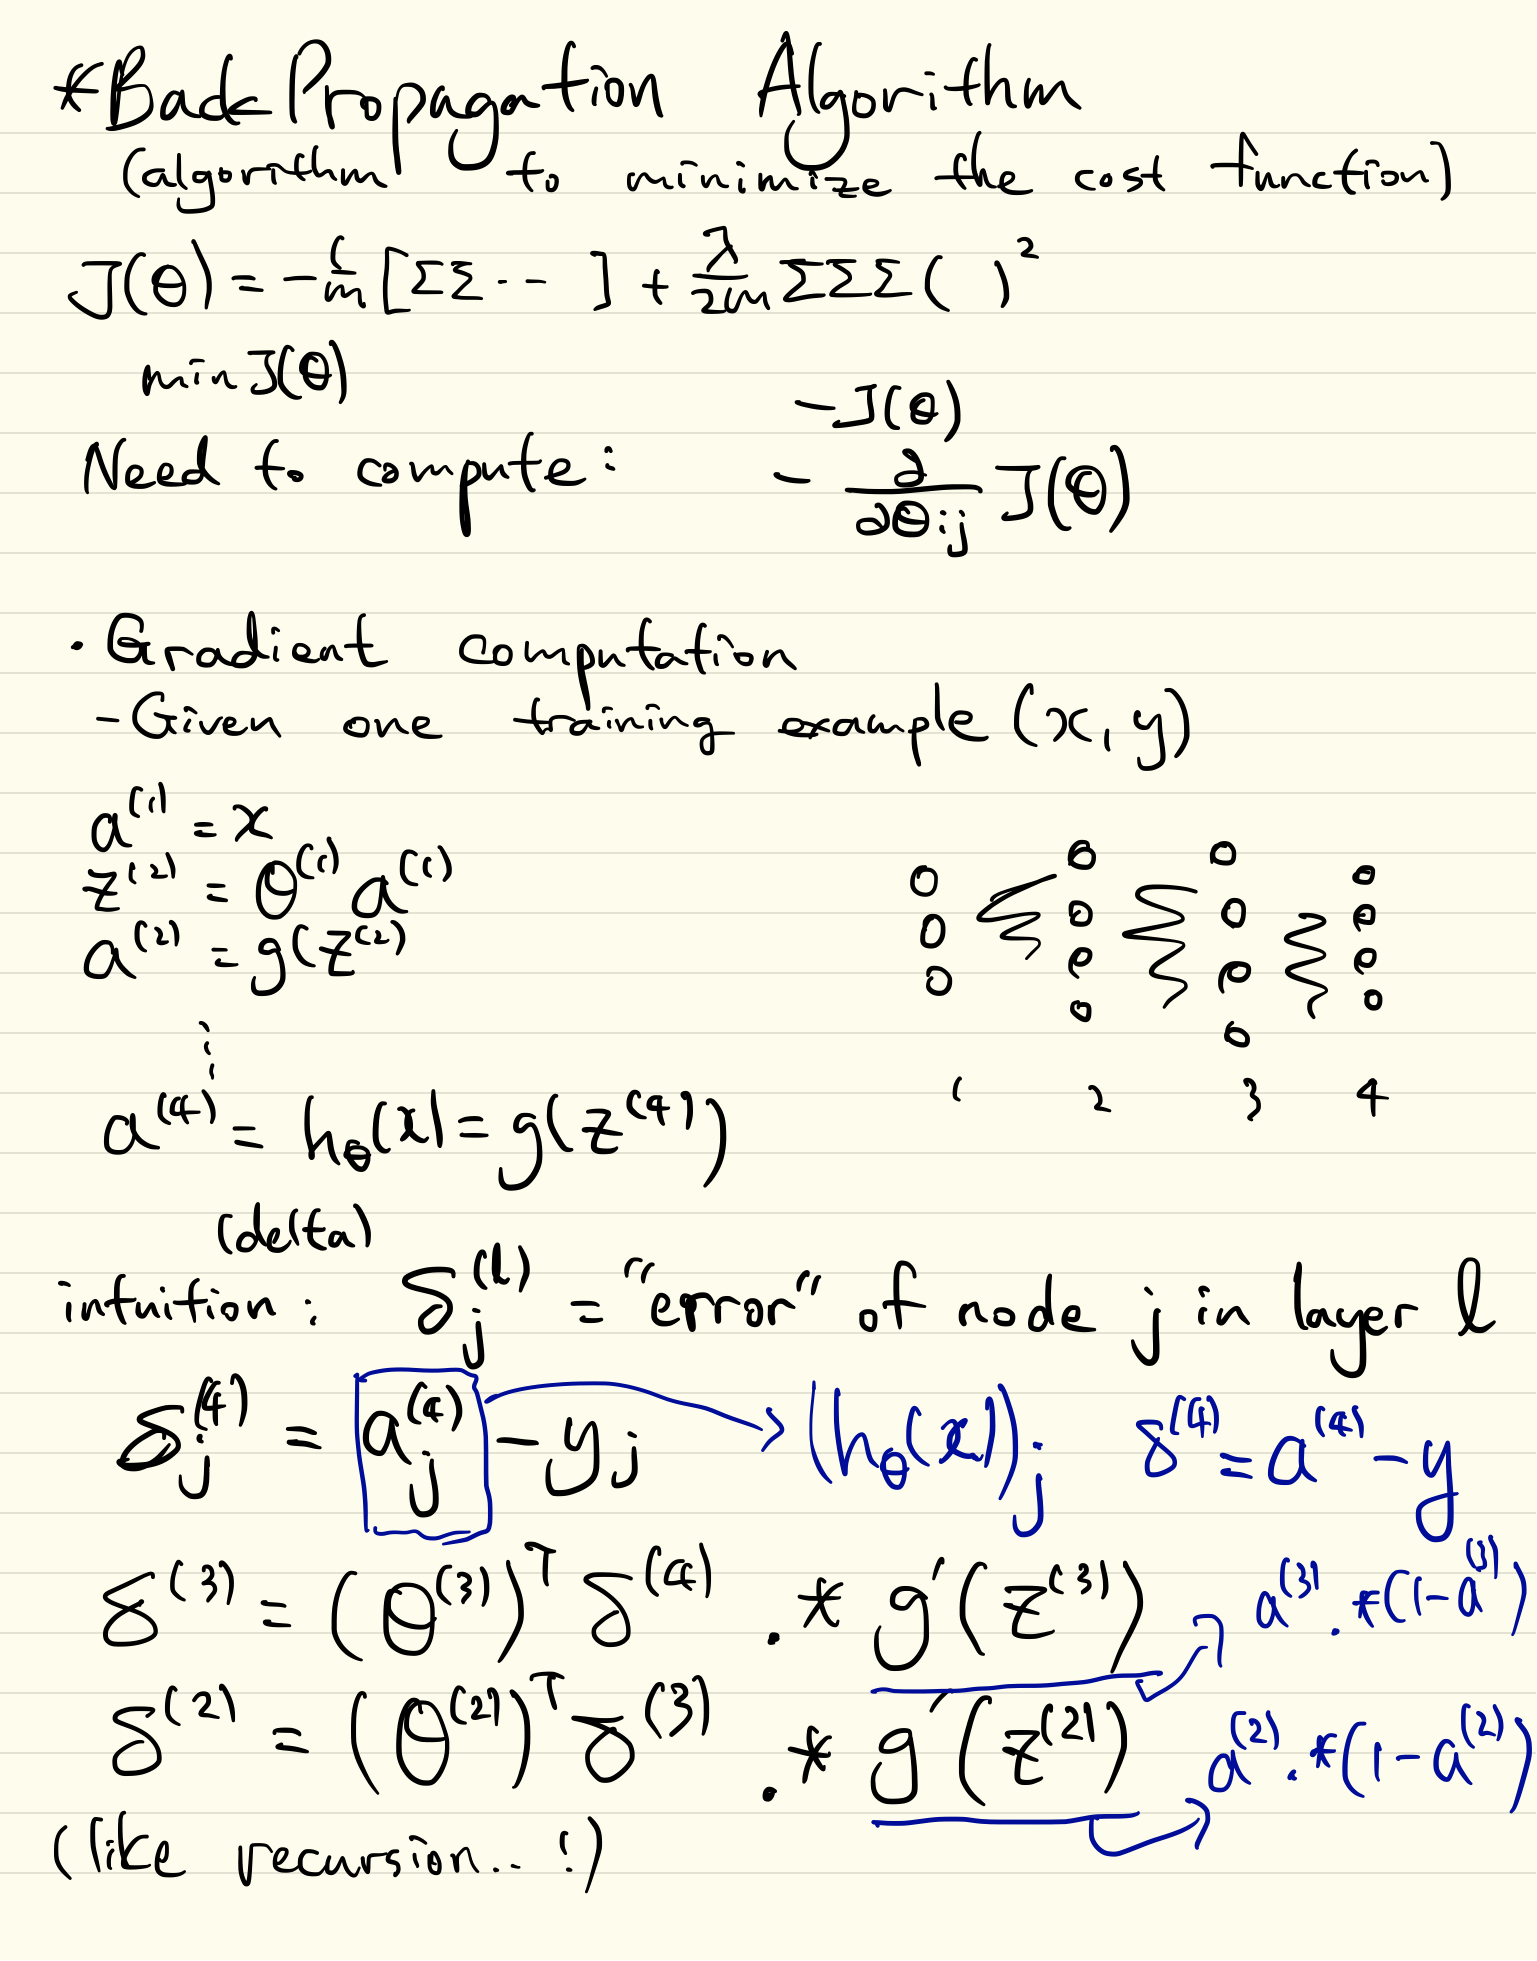 *BackPropagation Algorithm
(algorithm to minimize the cost function)
J(θ) = -1/m [ΣΣ... ] + λ/2m ΣΣΣ( )²
min J(θ)
Need to compute: -J(θ)
- ∂/∂θij J(θ)
· Gradient computation
- Given one training example (x, y)
a⁽¹⁾ = x
z⁽²⁾ = θ⁽¹⁾ a⁽¹⁾
a⁽²⁾ = g(z⁽²⁾
⋮
1 2 3 4
a⁽⁴⁾ = hθ(x) = g(z⁽⁴⁾)
(delta)
intuition: δj⁽ˡ⁾ = "error" of node j in layer l
δj⁽⁴⁾ = aj⁽⁴⁾ - yj → (hθ(x))j δ⁽⁴⁾ = a⁽⁴⁾ - y
δ⁽³⁾ = (θ⁽³⁾)ᵀ δ⁽⁴⁾ .* g'(z⁽³⁾) → a⁽³⁾ .* (1-a⁽³⁾)
δ⁽²⁾ = (θ⁽²⁾)ᵀ δ⁽³⁾ .* g'(z⁽²⁾) → a⁽²⁾ .* (1-a⁽²⁾)
(like recursion.. !)